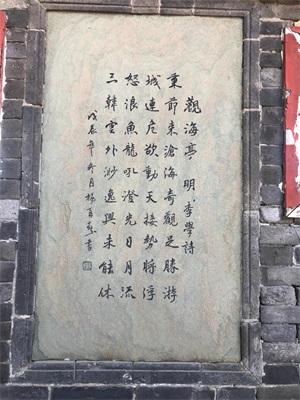 觀海亭 明 李學詩
東節来滄海奇觀足勝游
城連危欲動天接勢將浮
怒浪魚龍吼澄光日月流
三韓雲外渺逸興未能休
戊辰年 月楊